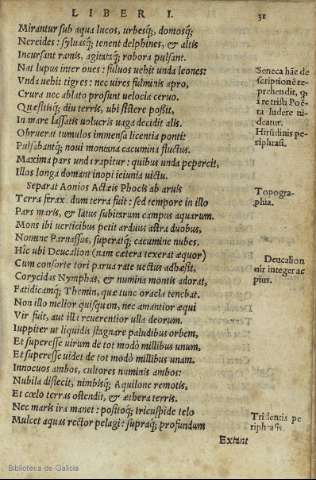 LIBER I. 31
Mirantur sub aqua lucos, urbesq́;, domosq́;
Nereides: syluasq́; tenent delphines, & altis
Incursant ramis, agitataq́; robora pulsant.
Nat lupus inter oues: fuluos uehit unda leones:
Vnda uehit tigres: nec uires fulminis apro,
Crura nec ablato prosunt uelocia ceruo.
Quæsitisq́; diu terris, ubi sistere possit,
In mare lassatis uolucris uaga decidit alis.
Obruerat tumulos immensa licentia ponti:
Pulsabantq́; noui montana cacumina fluctus.
Maxima pars unda rapitur: quibus unda pepercit,
Illos longa domant inopi ieiunia uictu.
Separat Aonios Actæis Phocis ab aruis
Terra ferax. dum terra fuit: sed tempore in illo
Pars maris, & latus subitarum campus aquarum.
Mons ibi uerticibus petit arduus astra duobus,
Nomine Parnassus, superatq́; cacumine nubes.
Hic ubi Deucalion (nam cætera texerat æquor)
Cum consorte tori parua rate uectus adhæsit.
Corycidas Nymphas, & numina montis adorat,
Fatidicamq́; Themin, quæ tunc oracla tenebat.
Non illo melior quisquam, nec amantior æqui
Vir fuit, aut illa reuerentior ulla deorum.
Iuppiter ut liquidis stagnare paludibus orbem,
Et superesse uirum de tot modò millibus unum,
Et superesse uidet de tot modò millibus unam.
Innocuos ambos, cultores numinis ambos:
Nubila disiecit, nimbisq́; Aquilone remotis,
Et cœlo terras ostendit, & æthera terris.
Nec maris ira manet: positoq́; tricuspide telo
Mulcet aquas rector pelagi: supraq́; profundum
Extant
Seneca hāc de
scriptionē re-
prehendit, q̀
ī re tristi Poë-
ta ludere ui-
deatur.
Hirūdinis pe-
riphrasis.
Topogra-
phia.
Deucalion
uir integer ac
pius.
Tridentis pe
riphrasis.
Biblioteca de Galicia